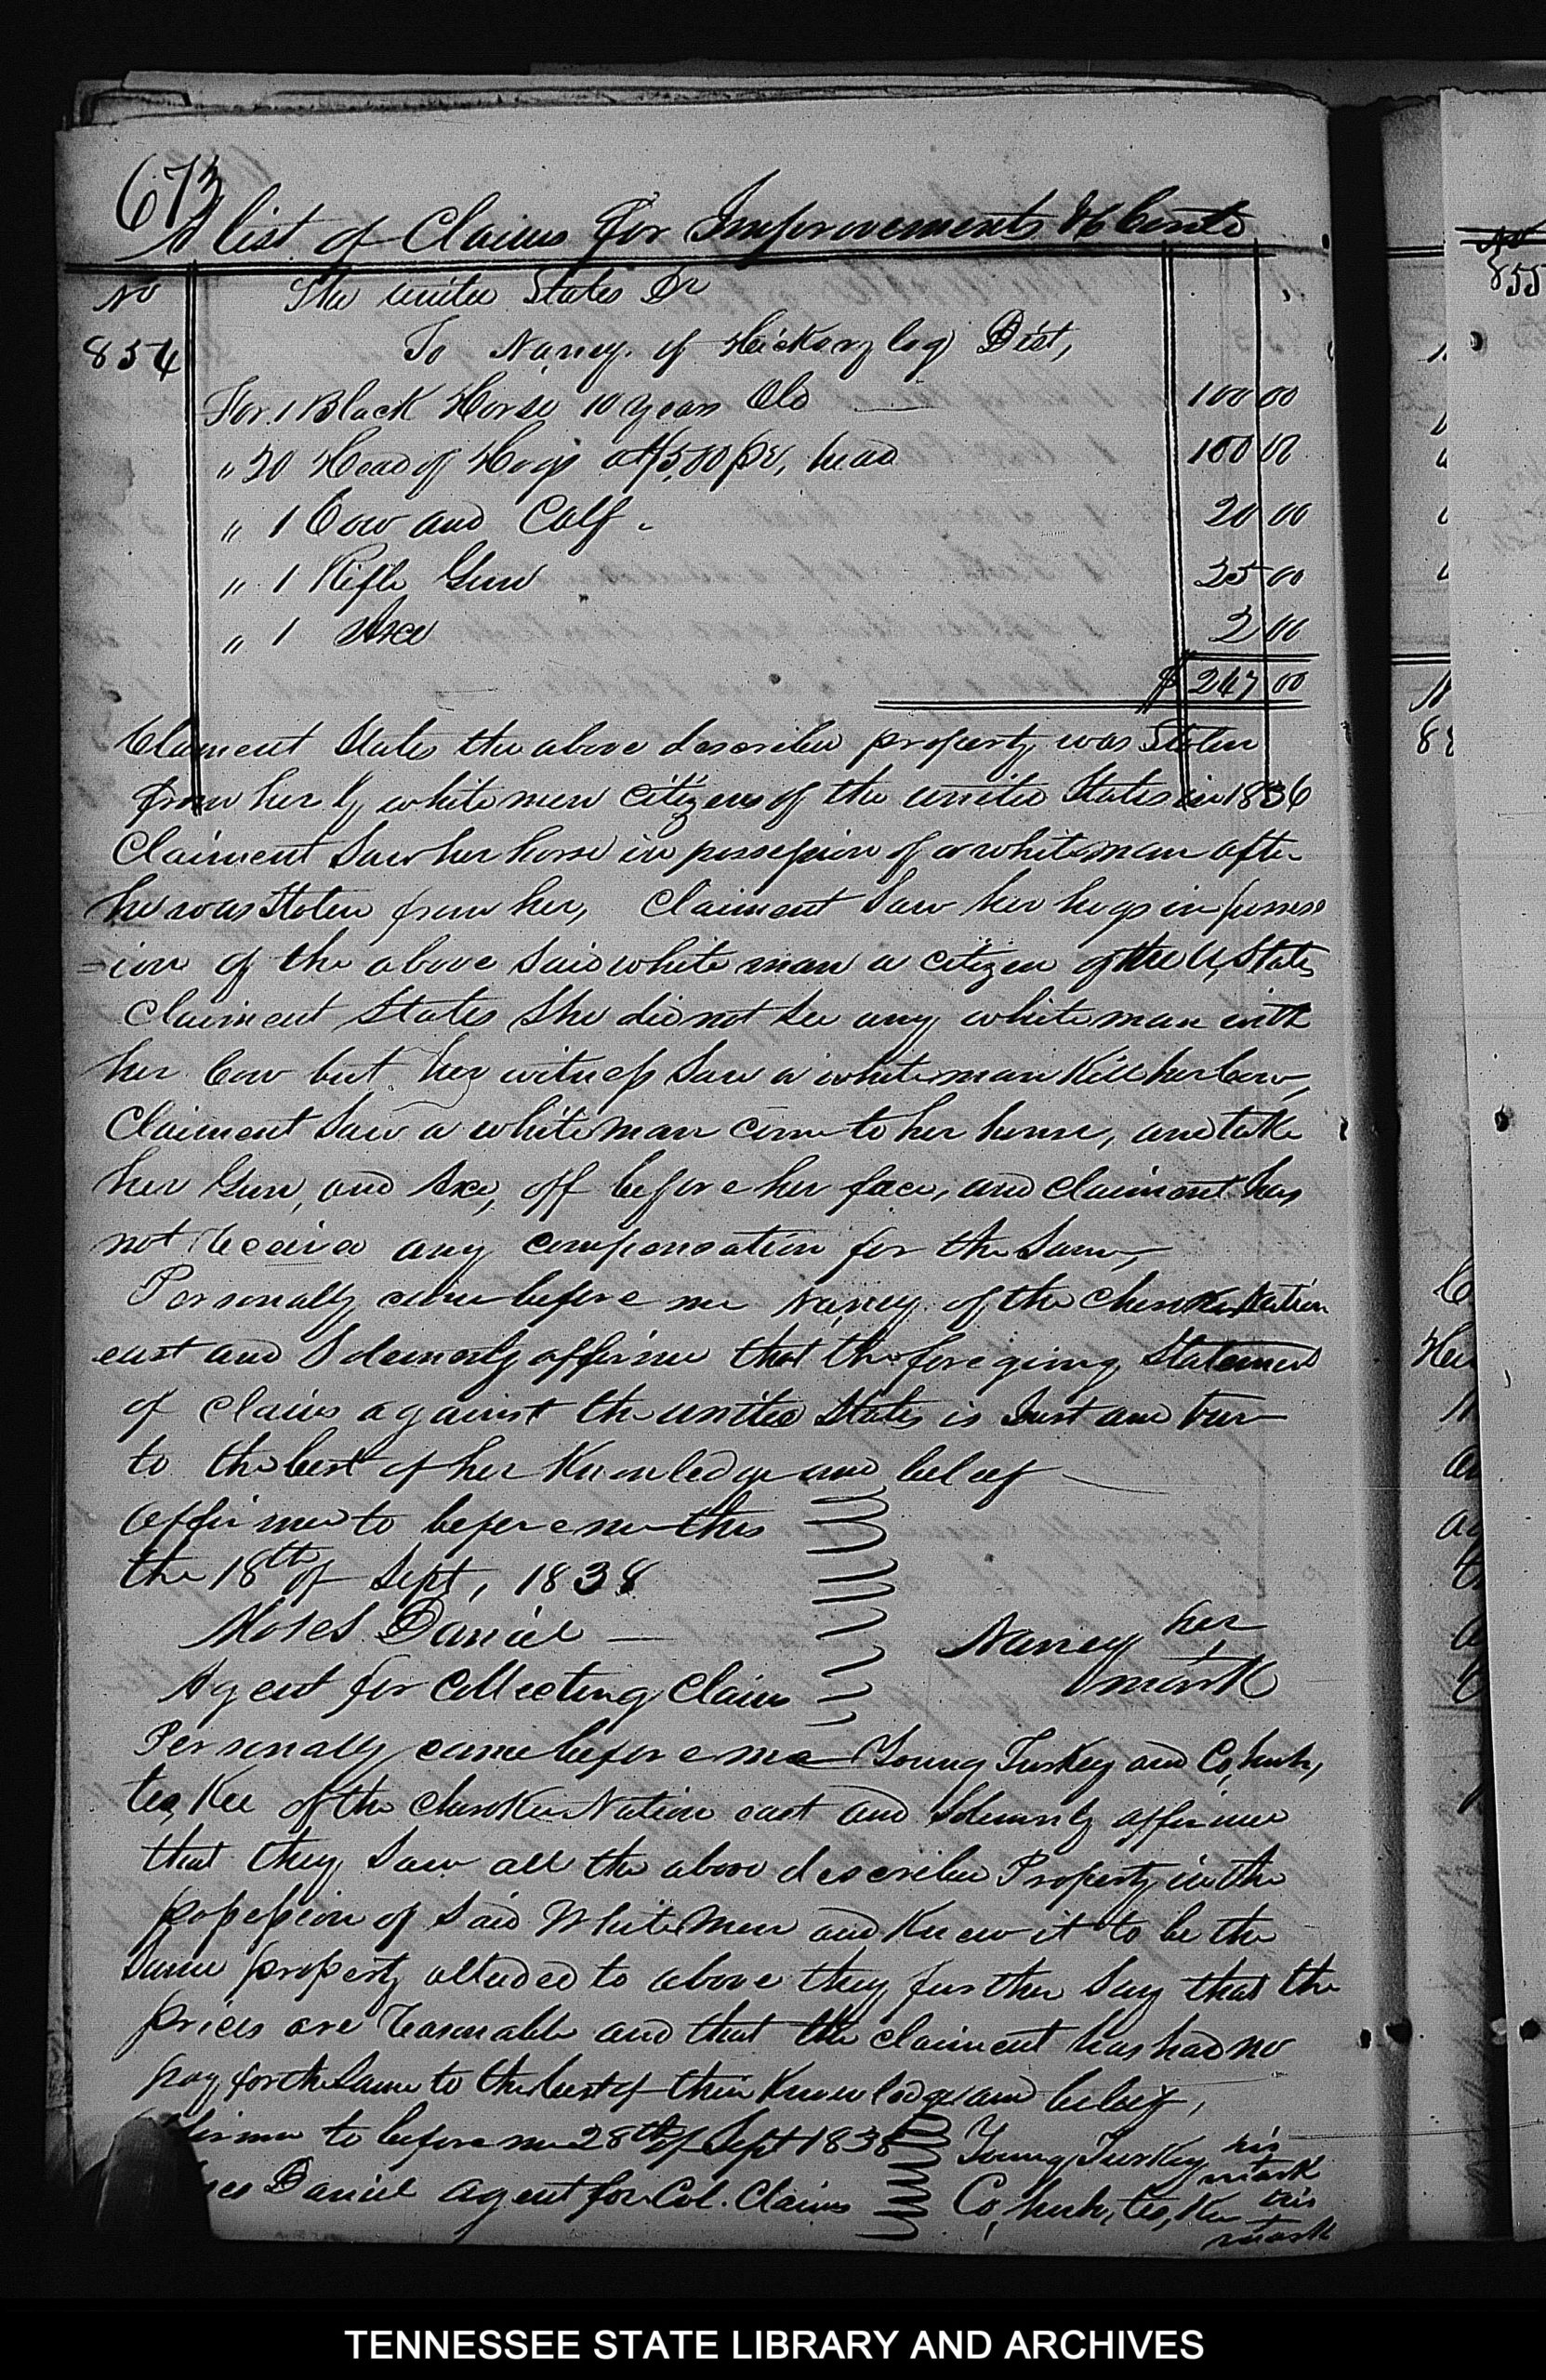 673
A list of Claims for Improvements &c
No The United States Dr
854 To Nancy of Hickory log Dist,
For 1 Black Horse 10 years Old — 100 00
" 20 Head of Hogs at $5,00 pr, head 100 00
" 1 Cow and Calf - 20 00
" 1 Rifle Gun 25 00
" 1 Axe 2 00
$ 247 00
Claiment States the above described property was Stolen
from her by white men citizens of the united States in 1836
Claiment Saw her horse in possession of a white man after
he was Stolen from her, Claiment Saw her hogs in possess
=ion of the above Said white man a citizen of the U, States
Claiment States She did not See any white man with
her Cow but her witness Saw a white man Kill her Cow,
Claiment Saw a white man come to her house, and take
her Gun, and Axe, off before her face, and claiment has
not Received any compensation for the Same,
Personally came before me Nancy of the Cherokee Nation
east and Solemnly affirmed that the foregoing Statement
of claims against the united States is Just and true
to the best of her Knowledge and beleef
Affirmed to before me this
the 18th of Sept, 1838
Moses Daniel — Nancy her
Agent for Collecting Claims mark
Personally came before me Young Turkey and Co, huh,
tes, Kee of the Cherokee Nation east and Solemnly affirmed
that they Saw all the above described Property in the
possession of Said White Men and Knew it to be the
Same property alluded to above they further Say that the
prices are reasonable and that the claiment has had no
pay for the Same to the best of their Knowledge and beleif,
to before me 28th of Sept 1838 Young Turkey his
mark
Daniel agent for Col. Claims Co, huh, tes, Kee his
mark
No
855
TENNESSEE STATE LIBRARY AND ARCHIVES